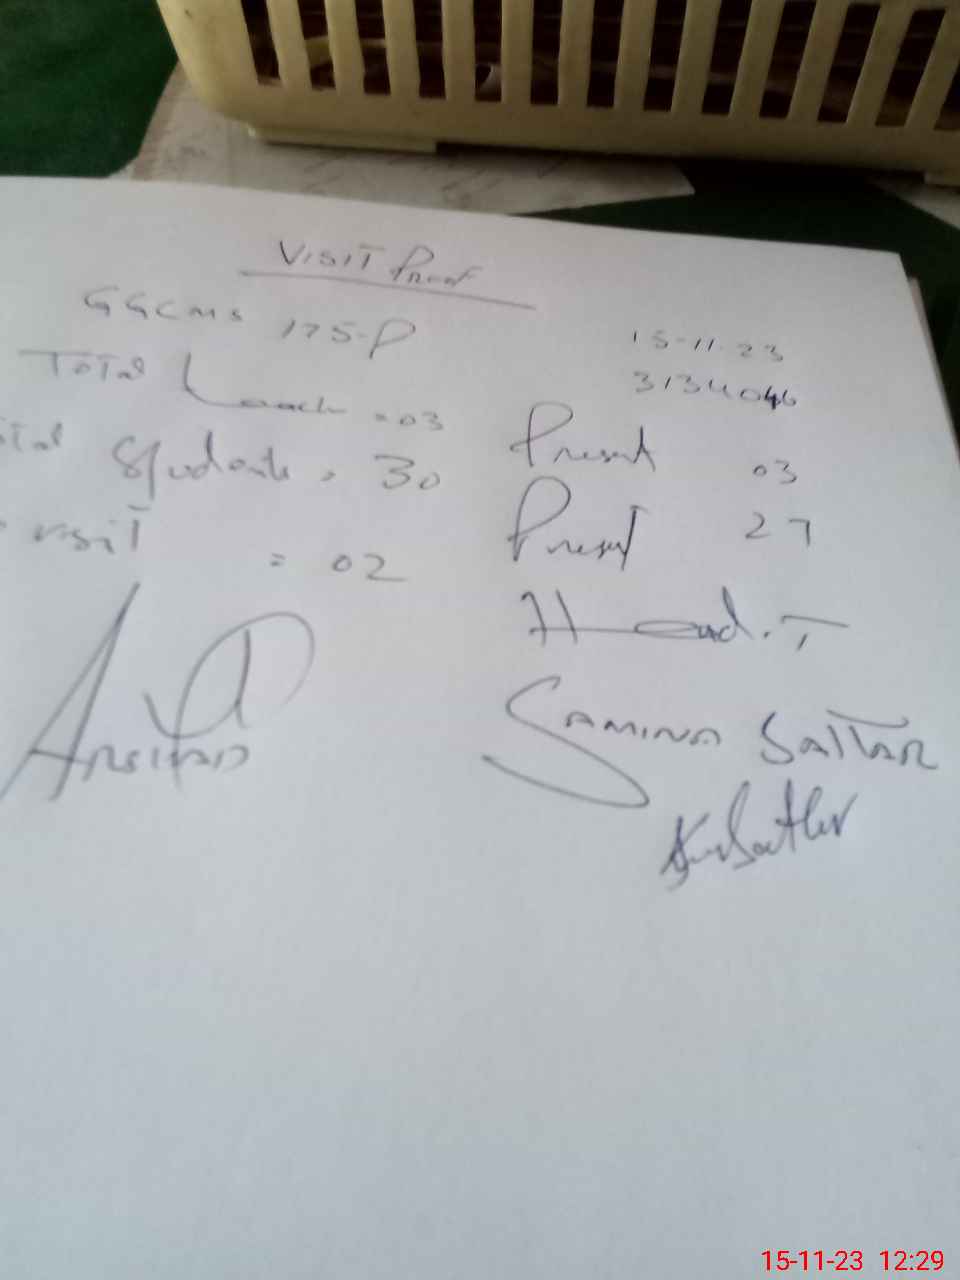 VISIT Proof
GGCMS 175-P 15-11-23
3134046
Total = 03 Present 03
Students = 30 Present 27
visit = 02
Head.T
Arshad SAMINA SATTAR
15-11-23 12:29